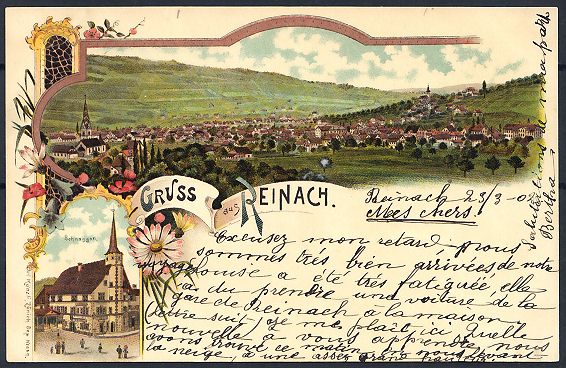 GRUSS
aus
REINACH.
Schneggen.
Reinach 23/3-02
Mes chers.
Excusez mon retard, nous
sommes très bien arrivées de notre
voyage
Louise a été très fatiguée, elle
a dû prendre une voiture de la
gare de Reinach à la maison
suit) je me plaît ici. Quelle
nouvelle a vous apprendre, nous
avons trouvé ce matin en nous levant
la neige, à une assez grand hauteur
Salutations de ma part
Bertha